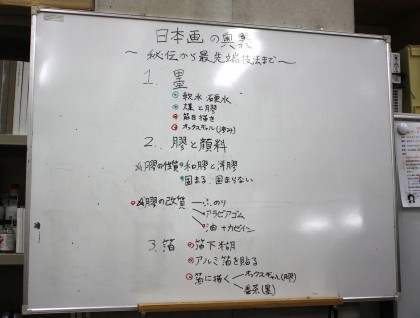 日本画の奥義
～秘伝から最先端技法まで～
1. 墨
軟水 硬水
煤と膠
筋目描き
オックスギャル(滲み)
2. 膠と顔料
膠の性質 和膠と洋膠
固まる、固まらない
膠の改質 ふのり
アラビアゴム
油+カゼイン
3. 箔 箔下糊
アルミ箔を貼る
箔に描く オックスギャル(膠)
番茶(墨)